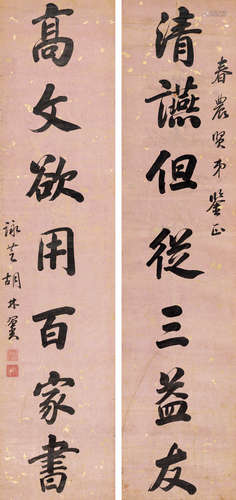 春農賢弟鑒正
清讌但從三益友
高文欲用百家書
詠芝胡林翼